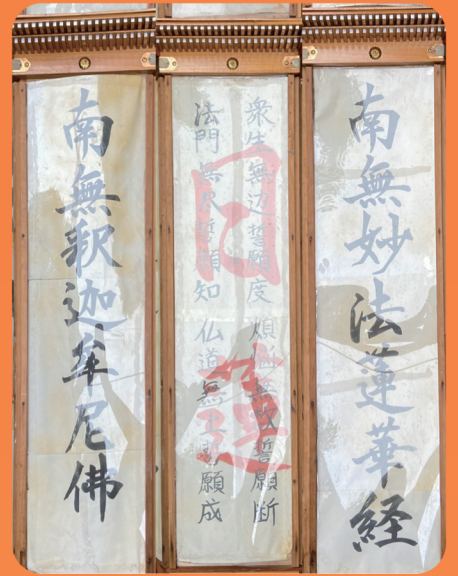 南無妙法蓮華経
衆生無辺誓願度 煩悩無数誓願断
法門無尽誓願知 仏道無上誓願成
日蓮
南無釈迦牟尼佛